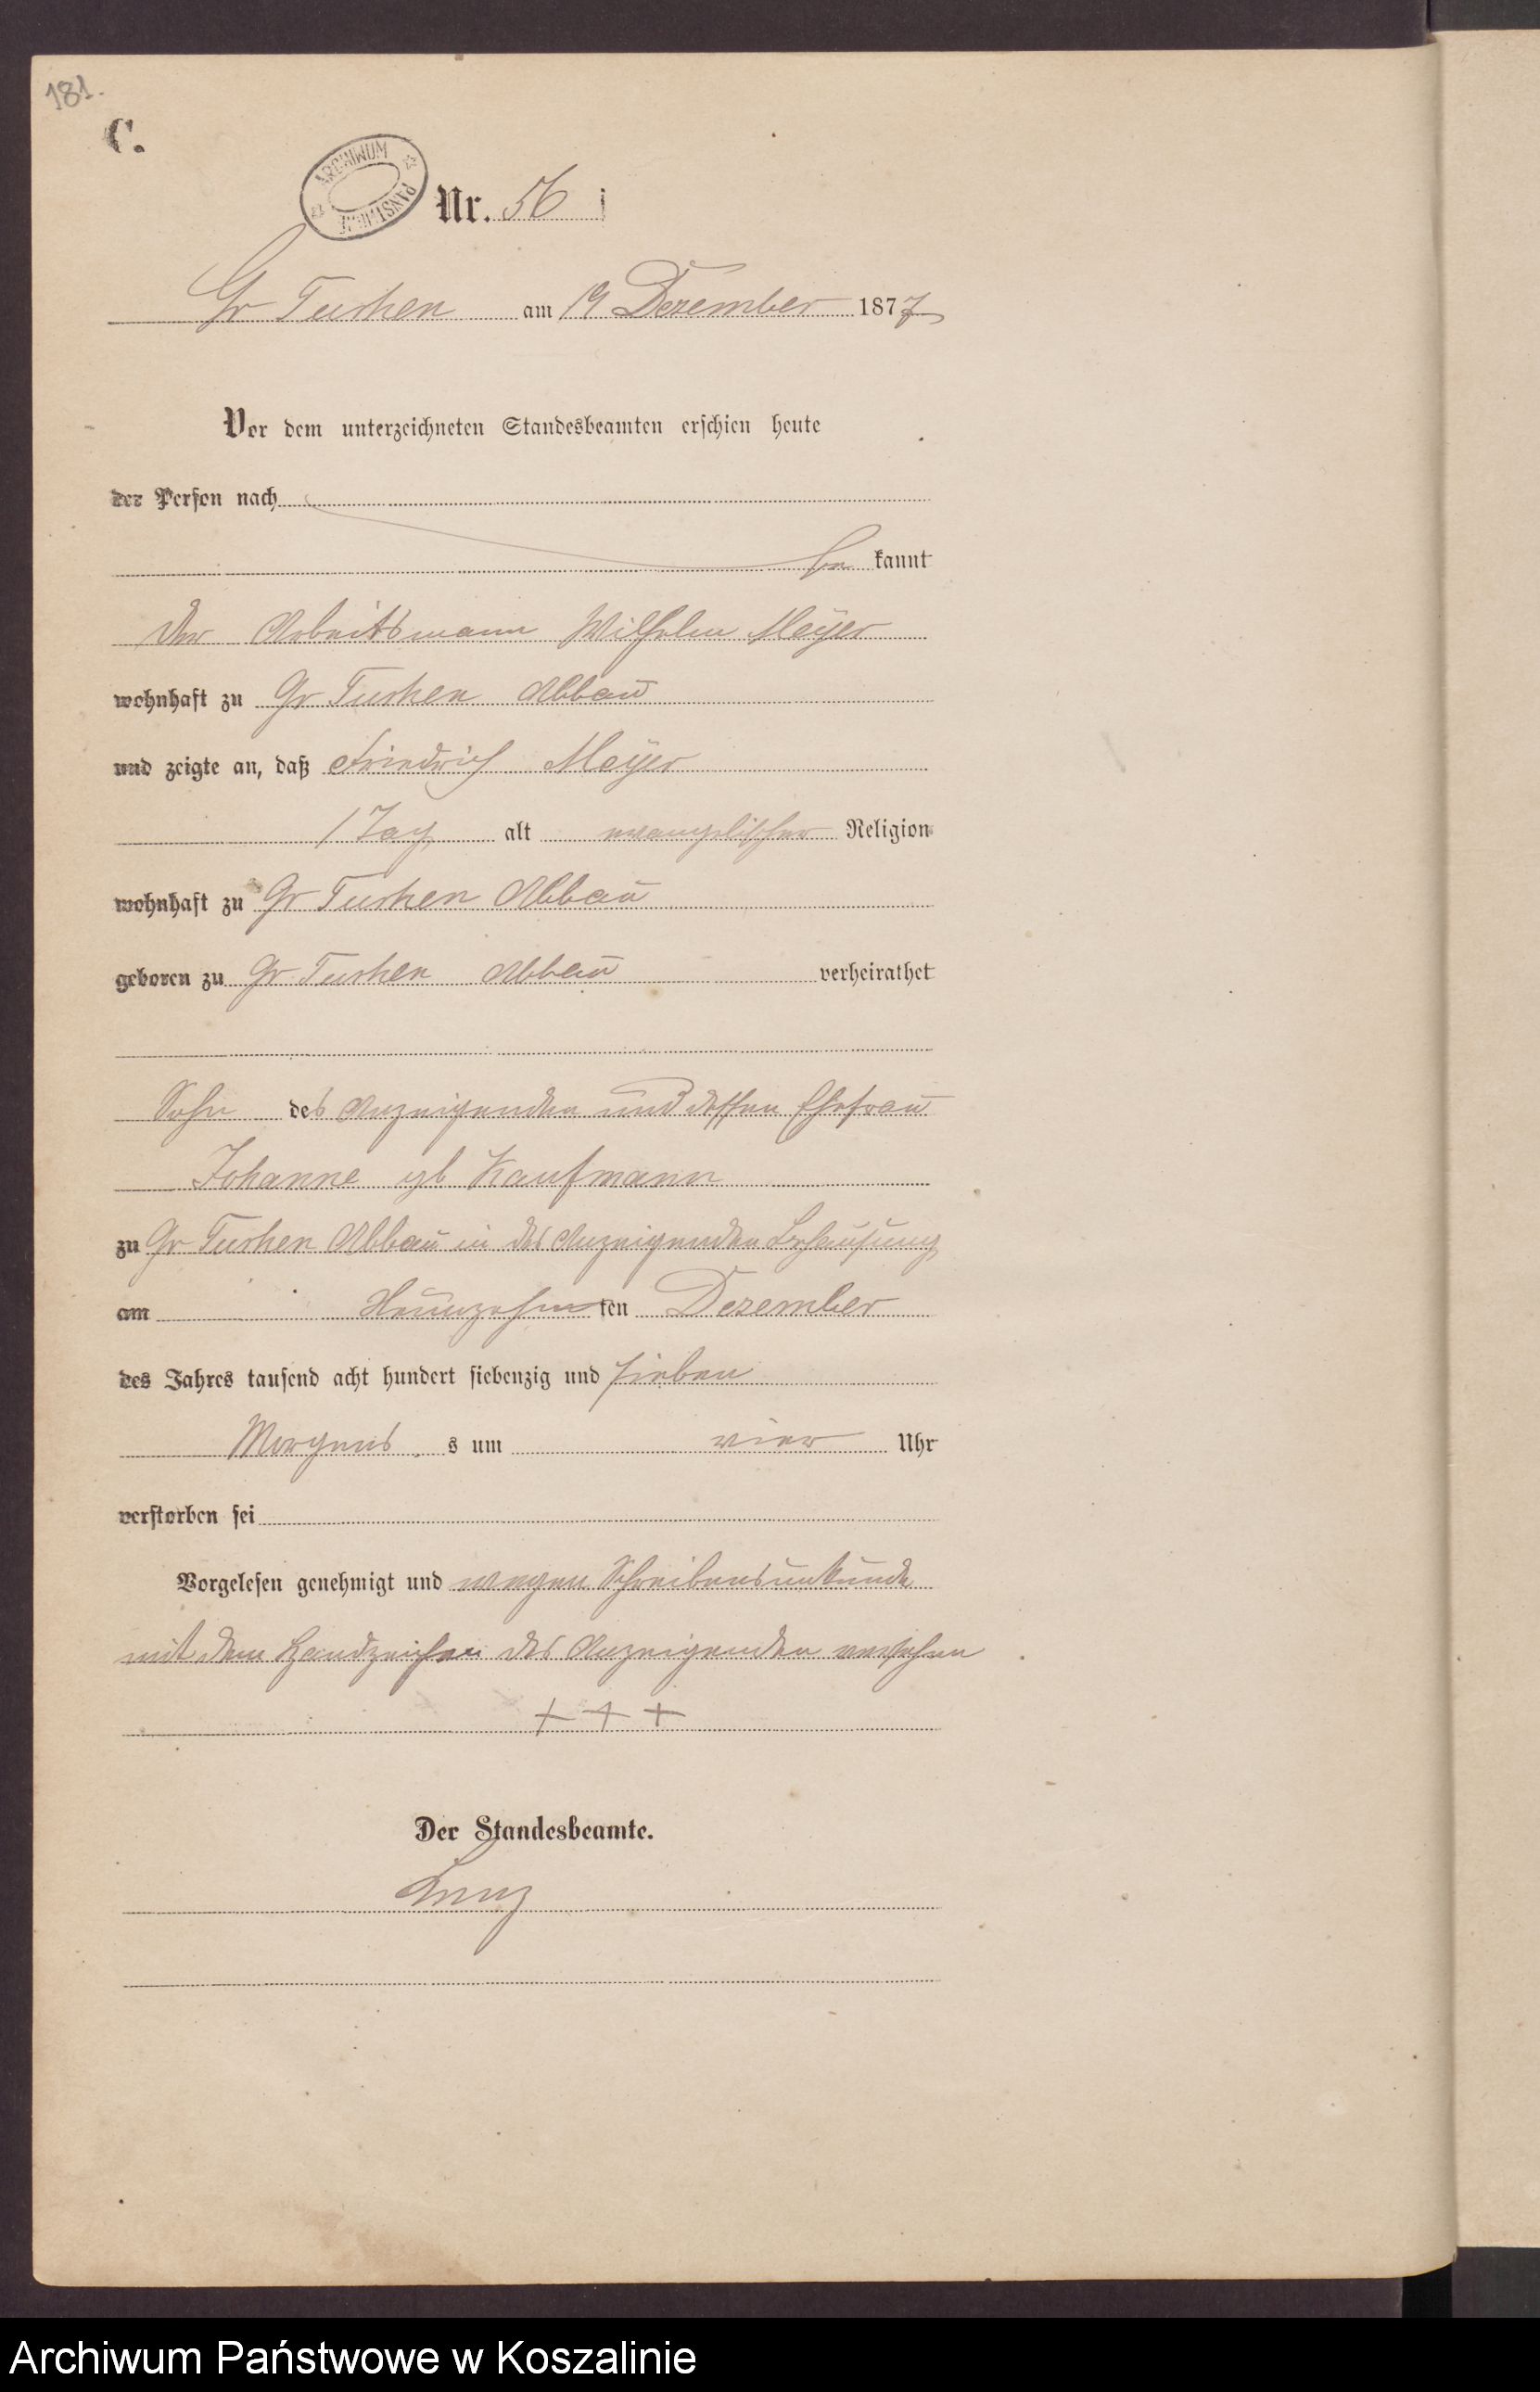 181.
C.
ARCHIWUM PAŃSTWOWE
Nr. 56
Gr Tuchen am 19 Dezember 1877
Vor dem unterzeichneten Standesbeamten erschien heute
der Person nach
be kannt
der Arbeitsmann Wilhelm Meyer
wohnhaft zu Gr Tuchen Abbau
und zeigte an, daß Friedrich Meyer
1 Tag alt evangelischer Religion
wohnhaft zu Gr Tuchen Abbau
geboren zu Gr Tuchen Abbau verheirathet
Sohn des Anzeigenden und dessen Ehefrau
Johanne gb Kaufmann
zu Gr Tuchen Abbau in des Anzeigenden Behausung
am Neunzehn ten Dezember
des Jahres tausend acht hundert siebenzig und sieben
Morgens s um vier Uhr
verstorben sei
Vorgelesen genehmigt und wegen Schreibensunkunde
mit dem Handzeichen des Anzeigenden versehen
+ + +
Der Standesbeamte.
Archiwum Państwowe w Koszalinie